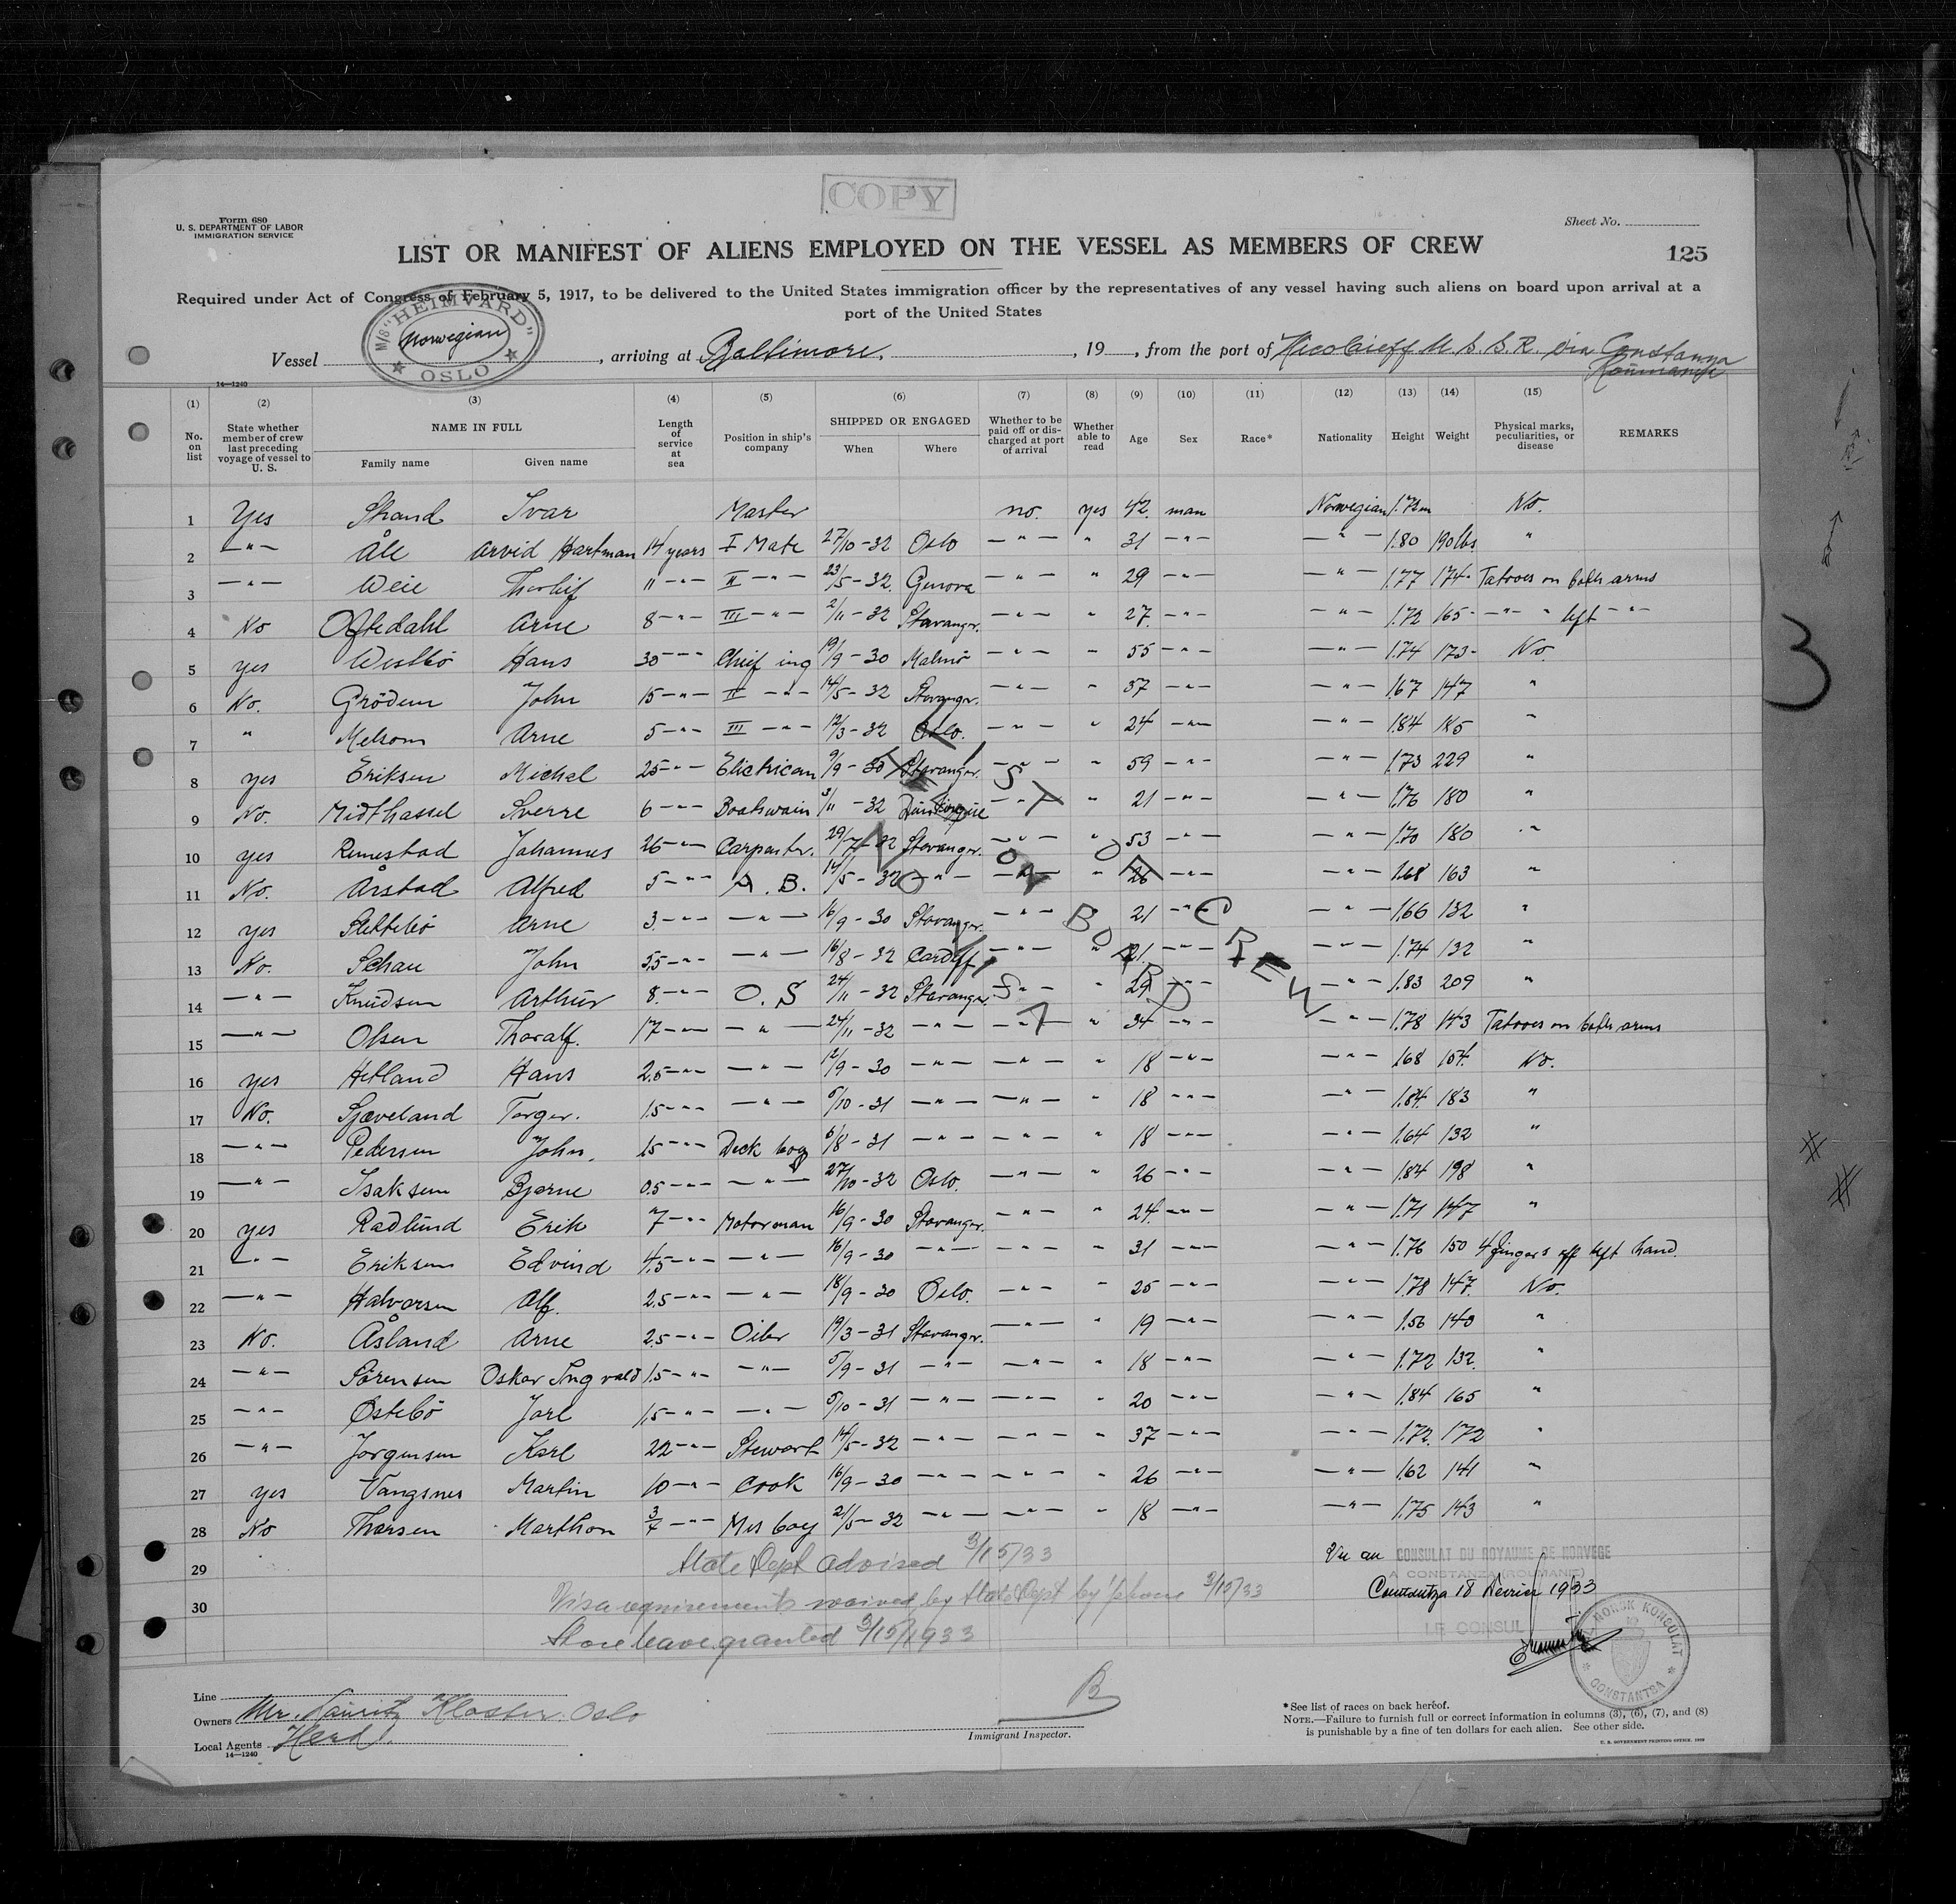 COPY
Form 680
U. S. DEPARTMENT OF LABOR
IMMIGRATION SERVICE
Sheet No.
LIST OR MANIFEST OF ALIENS EMPLOYED ON THE VESSEL AS MEMBERS OF CREW
125
Required under Act of Congress of February 5, 1917, to be delivered to the United States immigration officer by the representatives of any vessel having such aliens on board upon arrival at a
port of the United States
M/S "HEIMVARD" Norwegian OSLO
Vessel , arriving at Baltimore. , 19 , from the port of Nicolaieff U.S.S.R. via Constanza
Roumania
14—1240
(1) (2) (3) (4) (5) (6) (7) (8) (9) (10) (11) (12) (13) (14) (15)
No. on list State whether member of crew last preceding voyage of vessel to U. S. NAME IN FULL Family name Given name Length of service at sea Position in ship's company SHIPPED OR ENGAGED When Where Whether to be paid off or discharged at port of arrival Whether able to read Age Sex Race* Nationality Height Weight Physical marks, peculiarities, or disease REMARKS
1 Yes Strand Ivar Master no. yes 42. man Norwegian 1.72m No.
2 —"— Åle Arvid Hartman 14 years I Mate 27/10-32 Oslo —"— " 31 —"— —"— 1.80 190 lbs "
3 —"— Weie Thorleif 11 —"— II —"— 23/5-32. Genova —"— " 29 —"— —"— 1.77 174- Tatooes on both arms
4 No Oftedahl Arne 8 —"— III —"— 2/11-32 Stavanger. —"— " 27. —"— —"— 1.72 165- —"— " left —"—
5 yes Westbö Hans 30 —"— Chief ing 19/9-30 Malmö —"— " 55 —"— —"— 1.74 173- No.
6 No. Grödem John 15 —"— II —"— 14/5-32 Stavanger. —"— " 37 —"— —"— 1.67 147 "
7 " Melsom Arne 5 —"— III —"— 12/3-32 Oslo. —"— " 24 —"— —"— 1.84 185 "
8 yes Eriksen Michal 25 —"— Elictrican 9/9-30 Stavanger. —"— " 59 —"— —"— 1.73 229 "
9 No. Midthassel Sverre 6 —"— Boatswain 3/11-32 —"— " 21 —"— —"— 1.76 180 "
10 yes Rimestad Johannes 26 —"— Carpenter. 29/7-32 Stavanger. —"— " 53 —"— —"— 1.70 180 "
11 No. Årstad Alfred 5 —"— A. B. 14/5-32 —"— —"— " 26 —"— —"— 1.68 163 "
12 yes Slettebö Arne 3 —"— —"— 16/9-30 Stavanger. —"— 21 —"— —"— 1.66 132 "
13 No. Schau John 3,5 —"— —"— 16/8-32 Cardiff —"— " 21. —"— —"— 1.74 132 "
14 —"— Knudsen Arthur 8 —"— O. S 24/11-32 Stavanger. —"— " 29 —"— —"— 1.83 209 "
15 —"— Olsen Thoralf. 17 —"— —"— 24/11-32 —"— —"— " 34 —"— —"— 1.78 143 Tatooes on both arms
16 yes Hetland Hans 2.5 —"— —"— 12/9-30 —"— —"— " 18 —"— —"— 1.68 154. No.
17 No. Sjæveland Torger. 1.5 —"— —"— 5/10-31 —"— —"— " 18 —"— —"— 1.84. 183 "
18 —"— Pedersen John. 1.5 —"— Deck boy 6/8-31 —"— —"— " 18 —"— —"— 1.64 132 "
19 —"— Isaksen Bjarne 0.5 —"— —"— 27/10-32 Oslo. —"— " 26 —"— —"— 1.84 198 "
20 yes Radlund Erik 7 —"— Motorman 16/9-30 Stavanger. —"— " 24. —"— —"— 1.71 147 "
21 —"— Eriksen Edvind 4.5 —"— —"— 16/9-30 —"— —"— " 31 —"— —"— 1.76 150 4 fingers off left hand.
22 —"— Halvorsen Alf. 2.5 —"— —"— 18/9-30 Oslo. —"— " 25 —"— —"— 1.78 147. No.
23 No. Åsland Arne 2.5 —"— Oiler 19/3-31 Stavanger. —"— " 19 —"— —"— 1.56 140 "
24 —"— Sörensen Oskar Ingvald 1.5 —"— —"— 5/9-31 —"— —"— " 18 —"— —"— 1.72 132. "
25 —"— Östebö Jarl 1,5 —"— —"— 5/10-31 —"— —"— " 20 —"— —"— 1.84 165 "
26 —"— Jorgensen Karl 22 —"— Stewart 14/5-32 —"— —"— " 37 —"— —"— 1.72. 172 "
27 yes Vangsnes Martin 10 —"— Cook 16/9-30 —"— —"— " 26 —"— —"— 1.62 141 "
28 No Thorsen Marthon 3/4 —"— Mes boy 21/5-32 —"— —"— " 18 —"— —"— 1.75 143 "
29 State Dept advised 3/15/33
30 Visa requirements waived by State Dept by 'phone 3/15/33
Shore leave granted 3/15/1933
Vu au CONSULAT DU ROYAUME DE NORVEGE
A CONSTANTZA (ROUMANIE)
Constantza 18 1933
LE CONSUL
NORSK KONSULAT CONSTANTSA
NO VISA
CREW
ON BOARD
Line
Owners Mr. Lauritz Kloster. Oslo
Local Agents Herd.
14—1240
B
Immigrant Inspector.
*See list of races on back hereof.
NOTE.—Failure to furnish full or correct information in columns (3), (6), (7), and (8)
is punishable by a fine of ten dollars for each alien. See other side.
U. S. GOVERNMENT PRINTING OFFICE
3